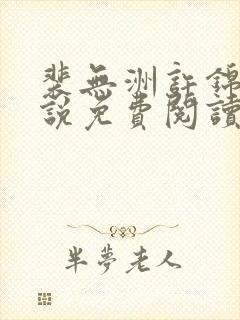 裴無洲許錦
說免費閱讀
半夢老人